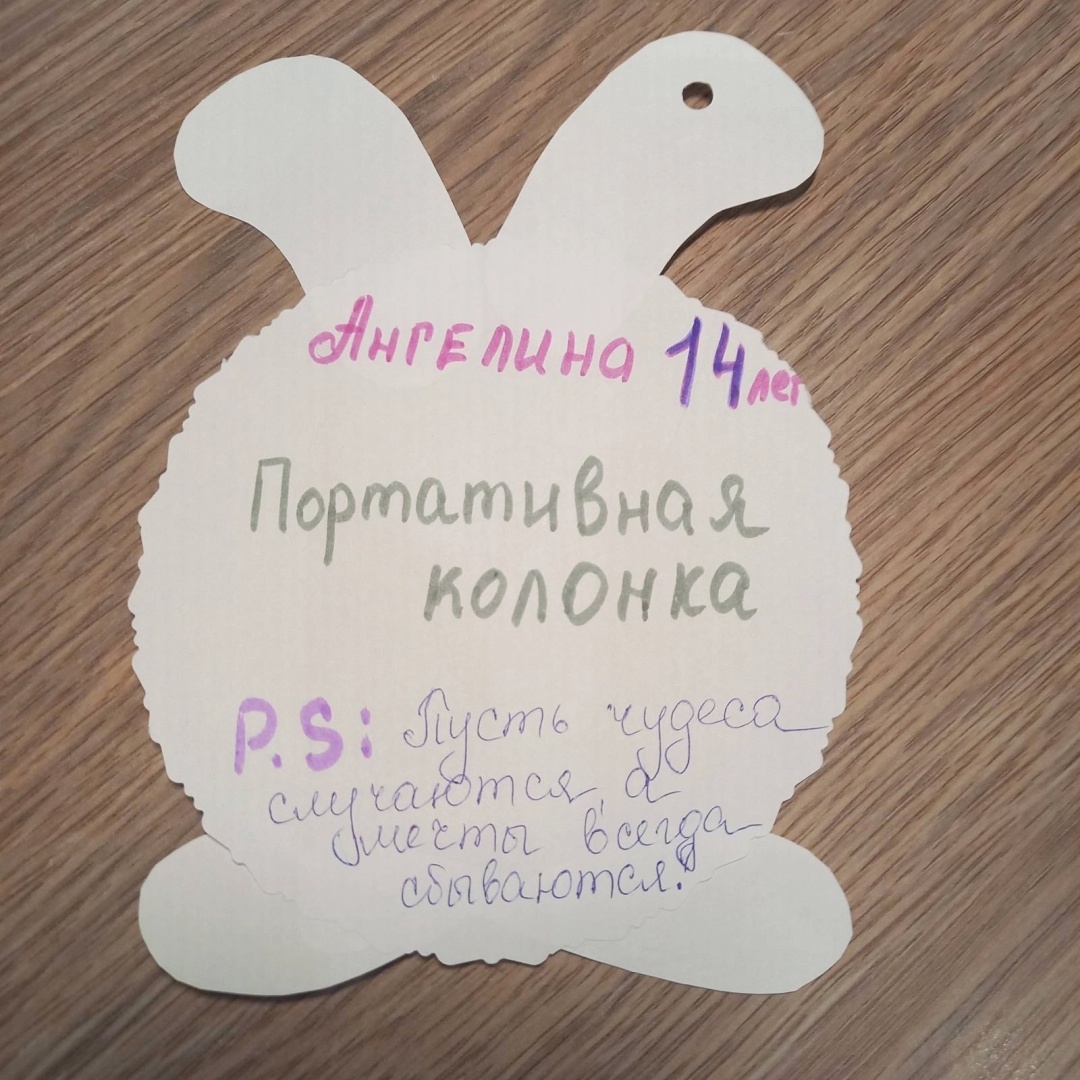 Ангелина 14 лет
Портативная
колонка
P.S: Пусть чудеса
случаются, а
мечты всегда
сбываются.